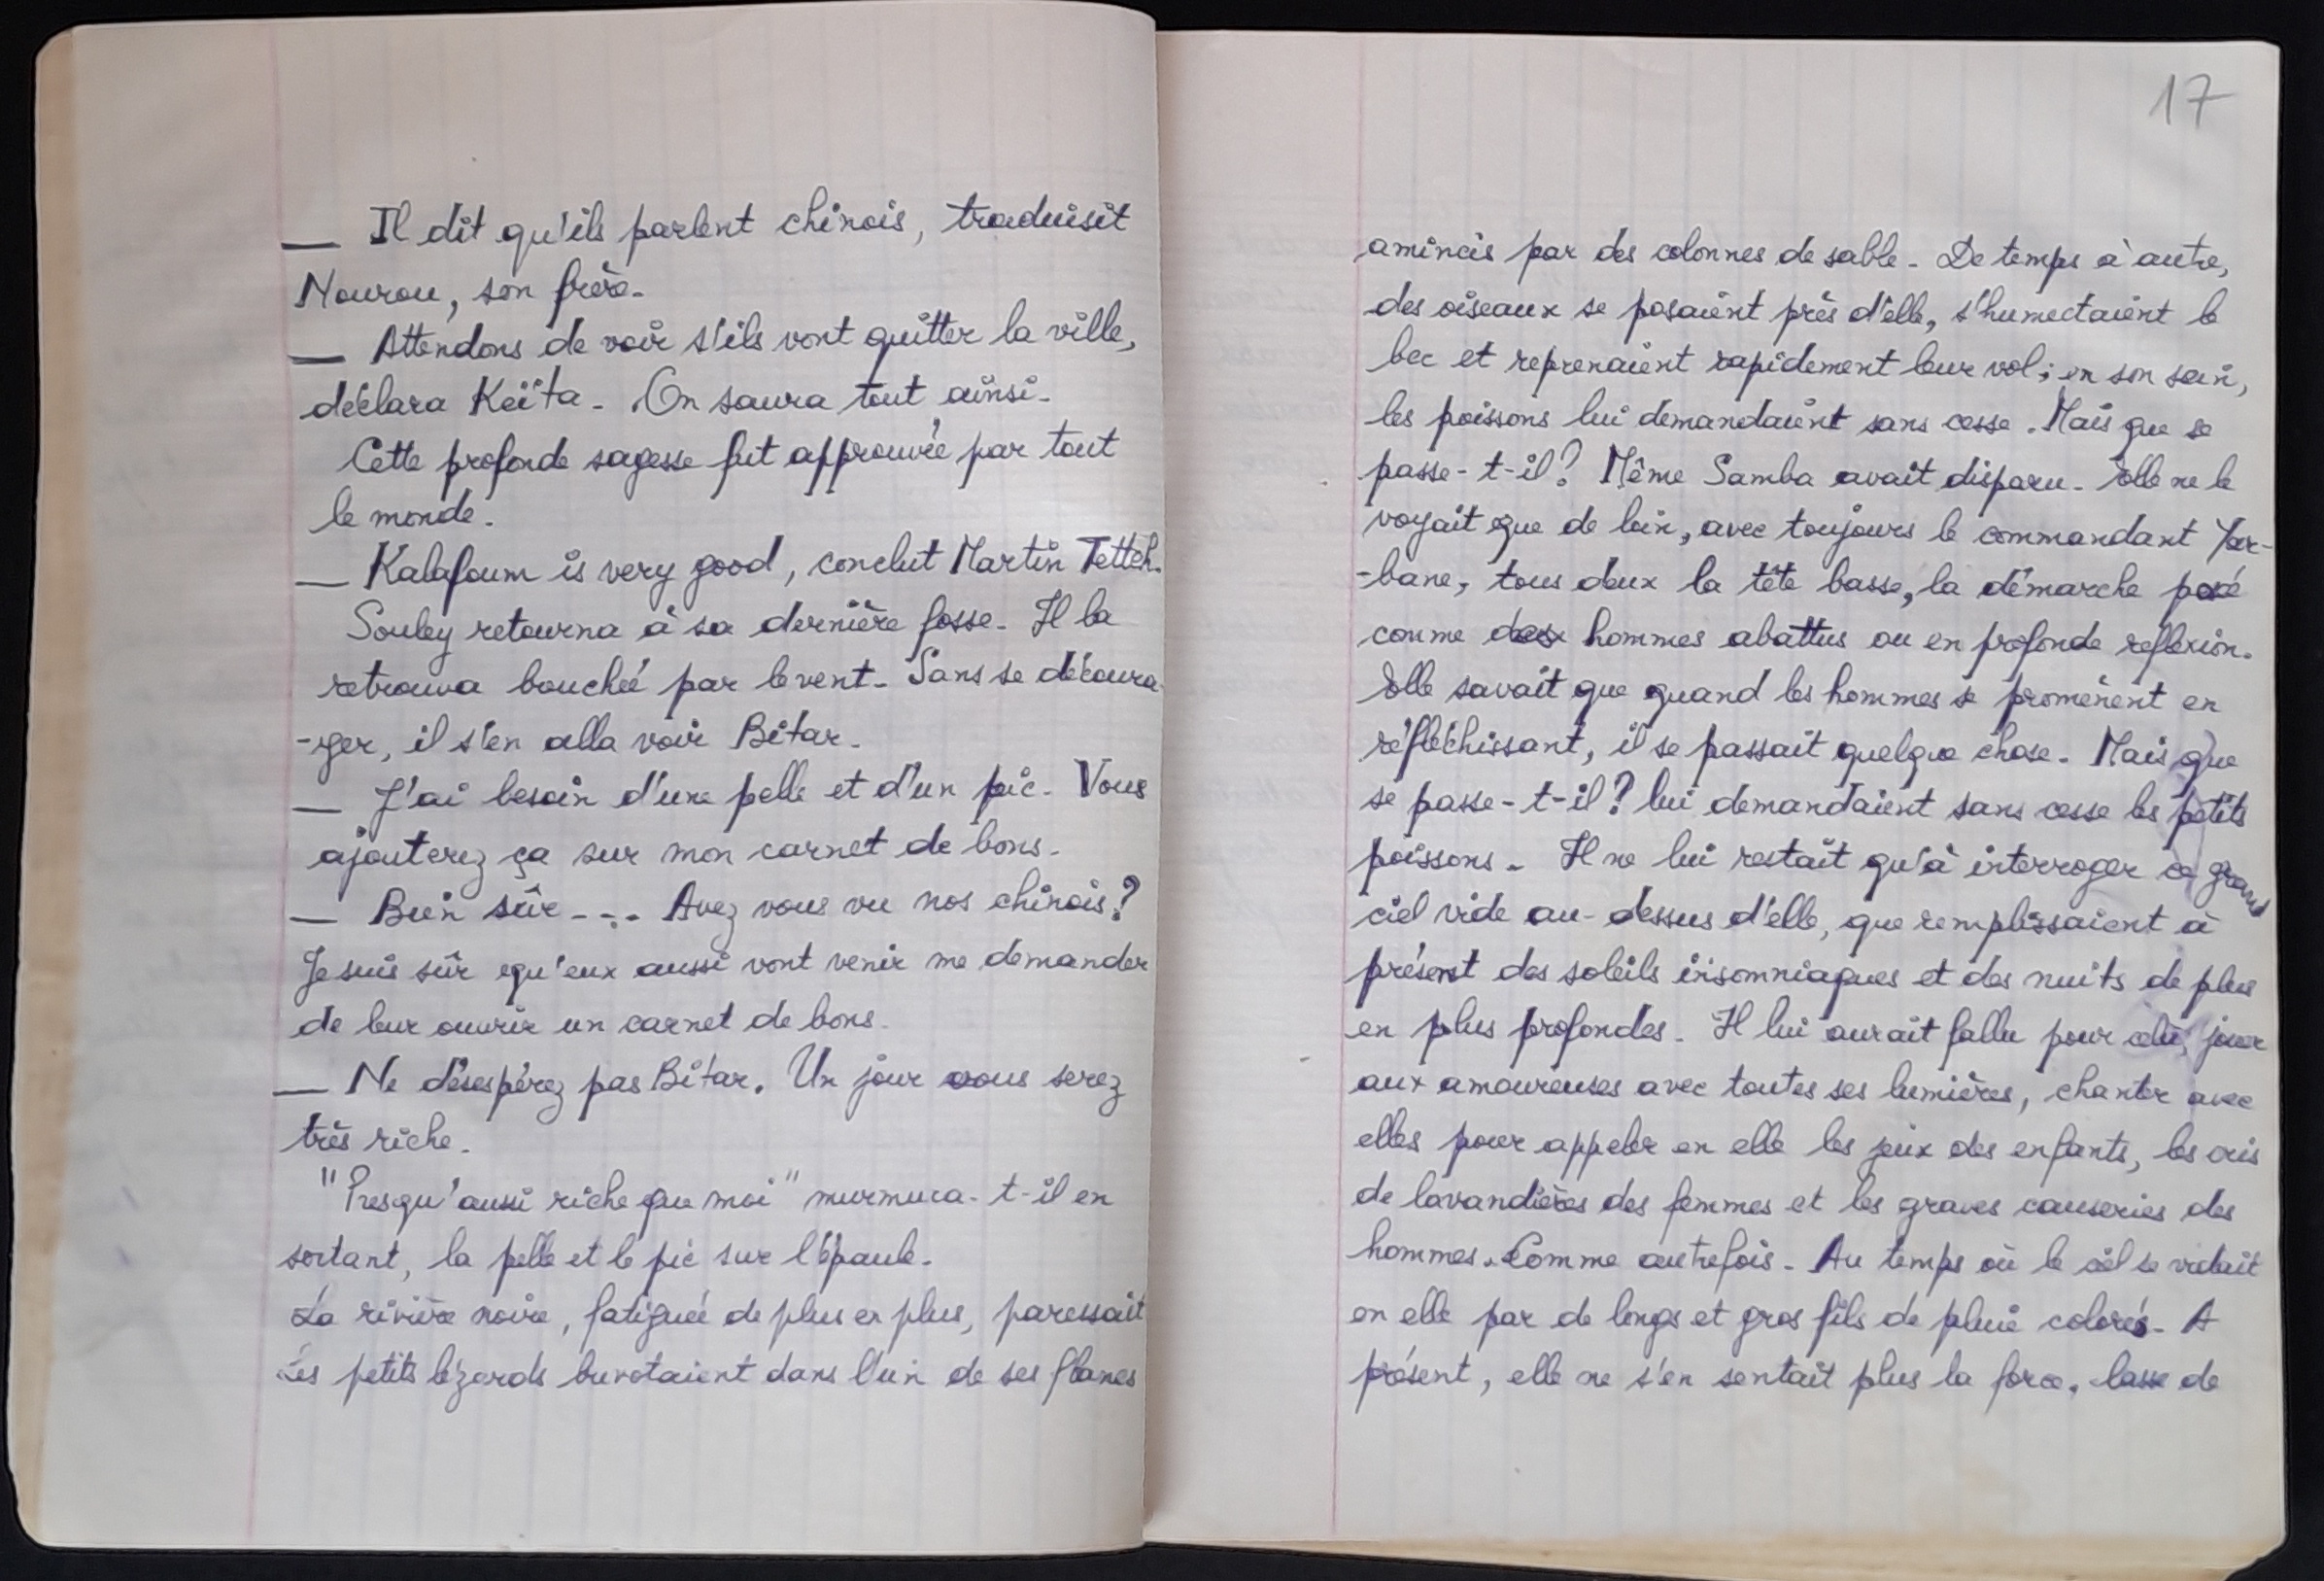 __ Il dit qu'ils parlent chinois, traduisit
Nourou, son frère.
__ Attendons de voir s'ils vont quitter la ville,
déclara Keïta. On saura tout ainsi.
Cette profonde sagesse fut approuvée par tout
le monde.
__ Kalafoum is very good, conclut Martin Tetteh.
Souley retourna à sa dernière fosse. Il la
retrouva bouchée par le vent. Sans se découra-
-ger, il s'en alla voir Bitar.
__ J'ai besoin d'une pelle et d'un pic. Vous
ajouterez ça sur mon carnet de bons.
__ Bien sûr... Avez vous vu nos chinois?
Je suis sûr qu'eux aussi vont venir me demander
de leur ouvrir un carnet de bons.
__ Ne désespérez pas Bitar. Un jour vous serez
très riche.
"Presqu'aussi riche que moi" murmura-t-il en
sortant, la pelle et le pic sur l'épaule.
La rivière noire, fatiguée de plus en plus, paressait
Les petits lézards buvotaient dans l'un de ses flancs
17
amincis par des colonnes de sable. De temps à autre,
des oiseaux se posaient près d'elle, s'humectaient le
bec et reprenaient rapidement leur vol; en son sein,
les poissons lui demandaient sans cesse. Mais que se
passe-t-il? Même Samba avait disparu. Elle ne le
voyait que de loin, avec toujours le commandant
-bane, tous deux la tête basse, la démarche posé
comme des hommes abattus ou en profonde reflexion.
Elle savait que quand les hommes se promènent en
réfléchissant, il se passait quelque chose. Mais que
se passe-t-il? lui demandaient sans cesse les petits
poissons. Il ne lui restait qu'à interroger ce grand
ciel vide au-dessus d'elle, que remplissaient à
présent des soleils insomniaques et des nuits de plus
en plus profondes. Il lui aurait fallu pour cela, jouer
aux amoureuses avec toutes ses lumières, chanter avec
elles pour appeler en elle les jeux des enfants, les cris
de lavandières des femmes et les graves causeries des
hommes. Comme autrefois. Au temps où le ciel se vidait
en elle par de longs et gros fils de pluie colorés. A
présent, elle ne s'en sentait plus la force, lasse de